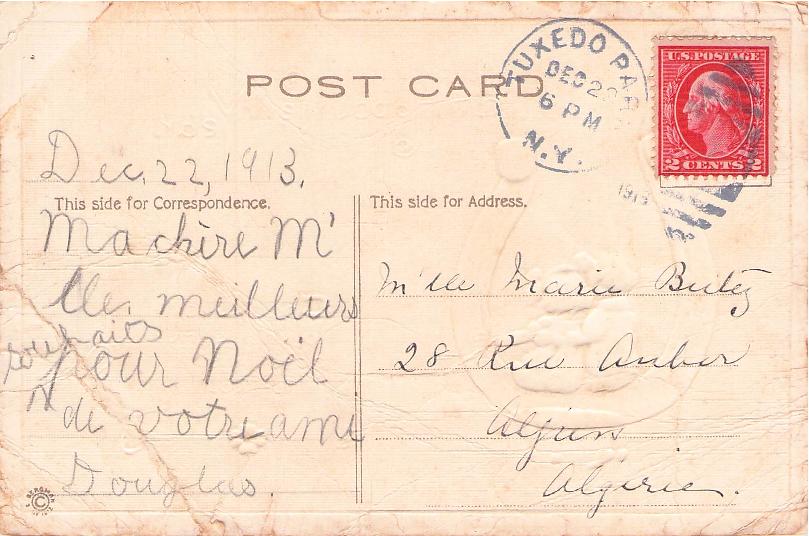 POST CARD
TUXEDO PARK
DEC 22
6 PM
N.Y.
1913
U.S. POSTAGE
2 CENTS 2
Dec. 22, 1913.
This side for Correspondence.
Ma chère M'
lle, meilleurs
souhaits
pour Noël
de votre ami
Douglas.
This side for Address.
M'lle Marie Butez
28 Rue Auber
Algiers
Algeria.